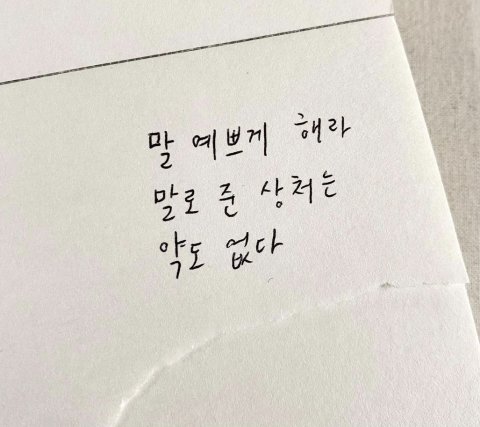 말 예쁘게 해라
말로 준 상처는
약도 없다